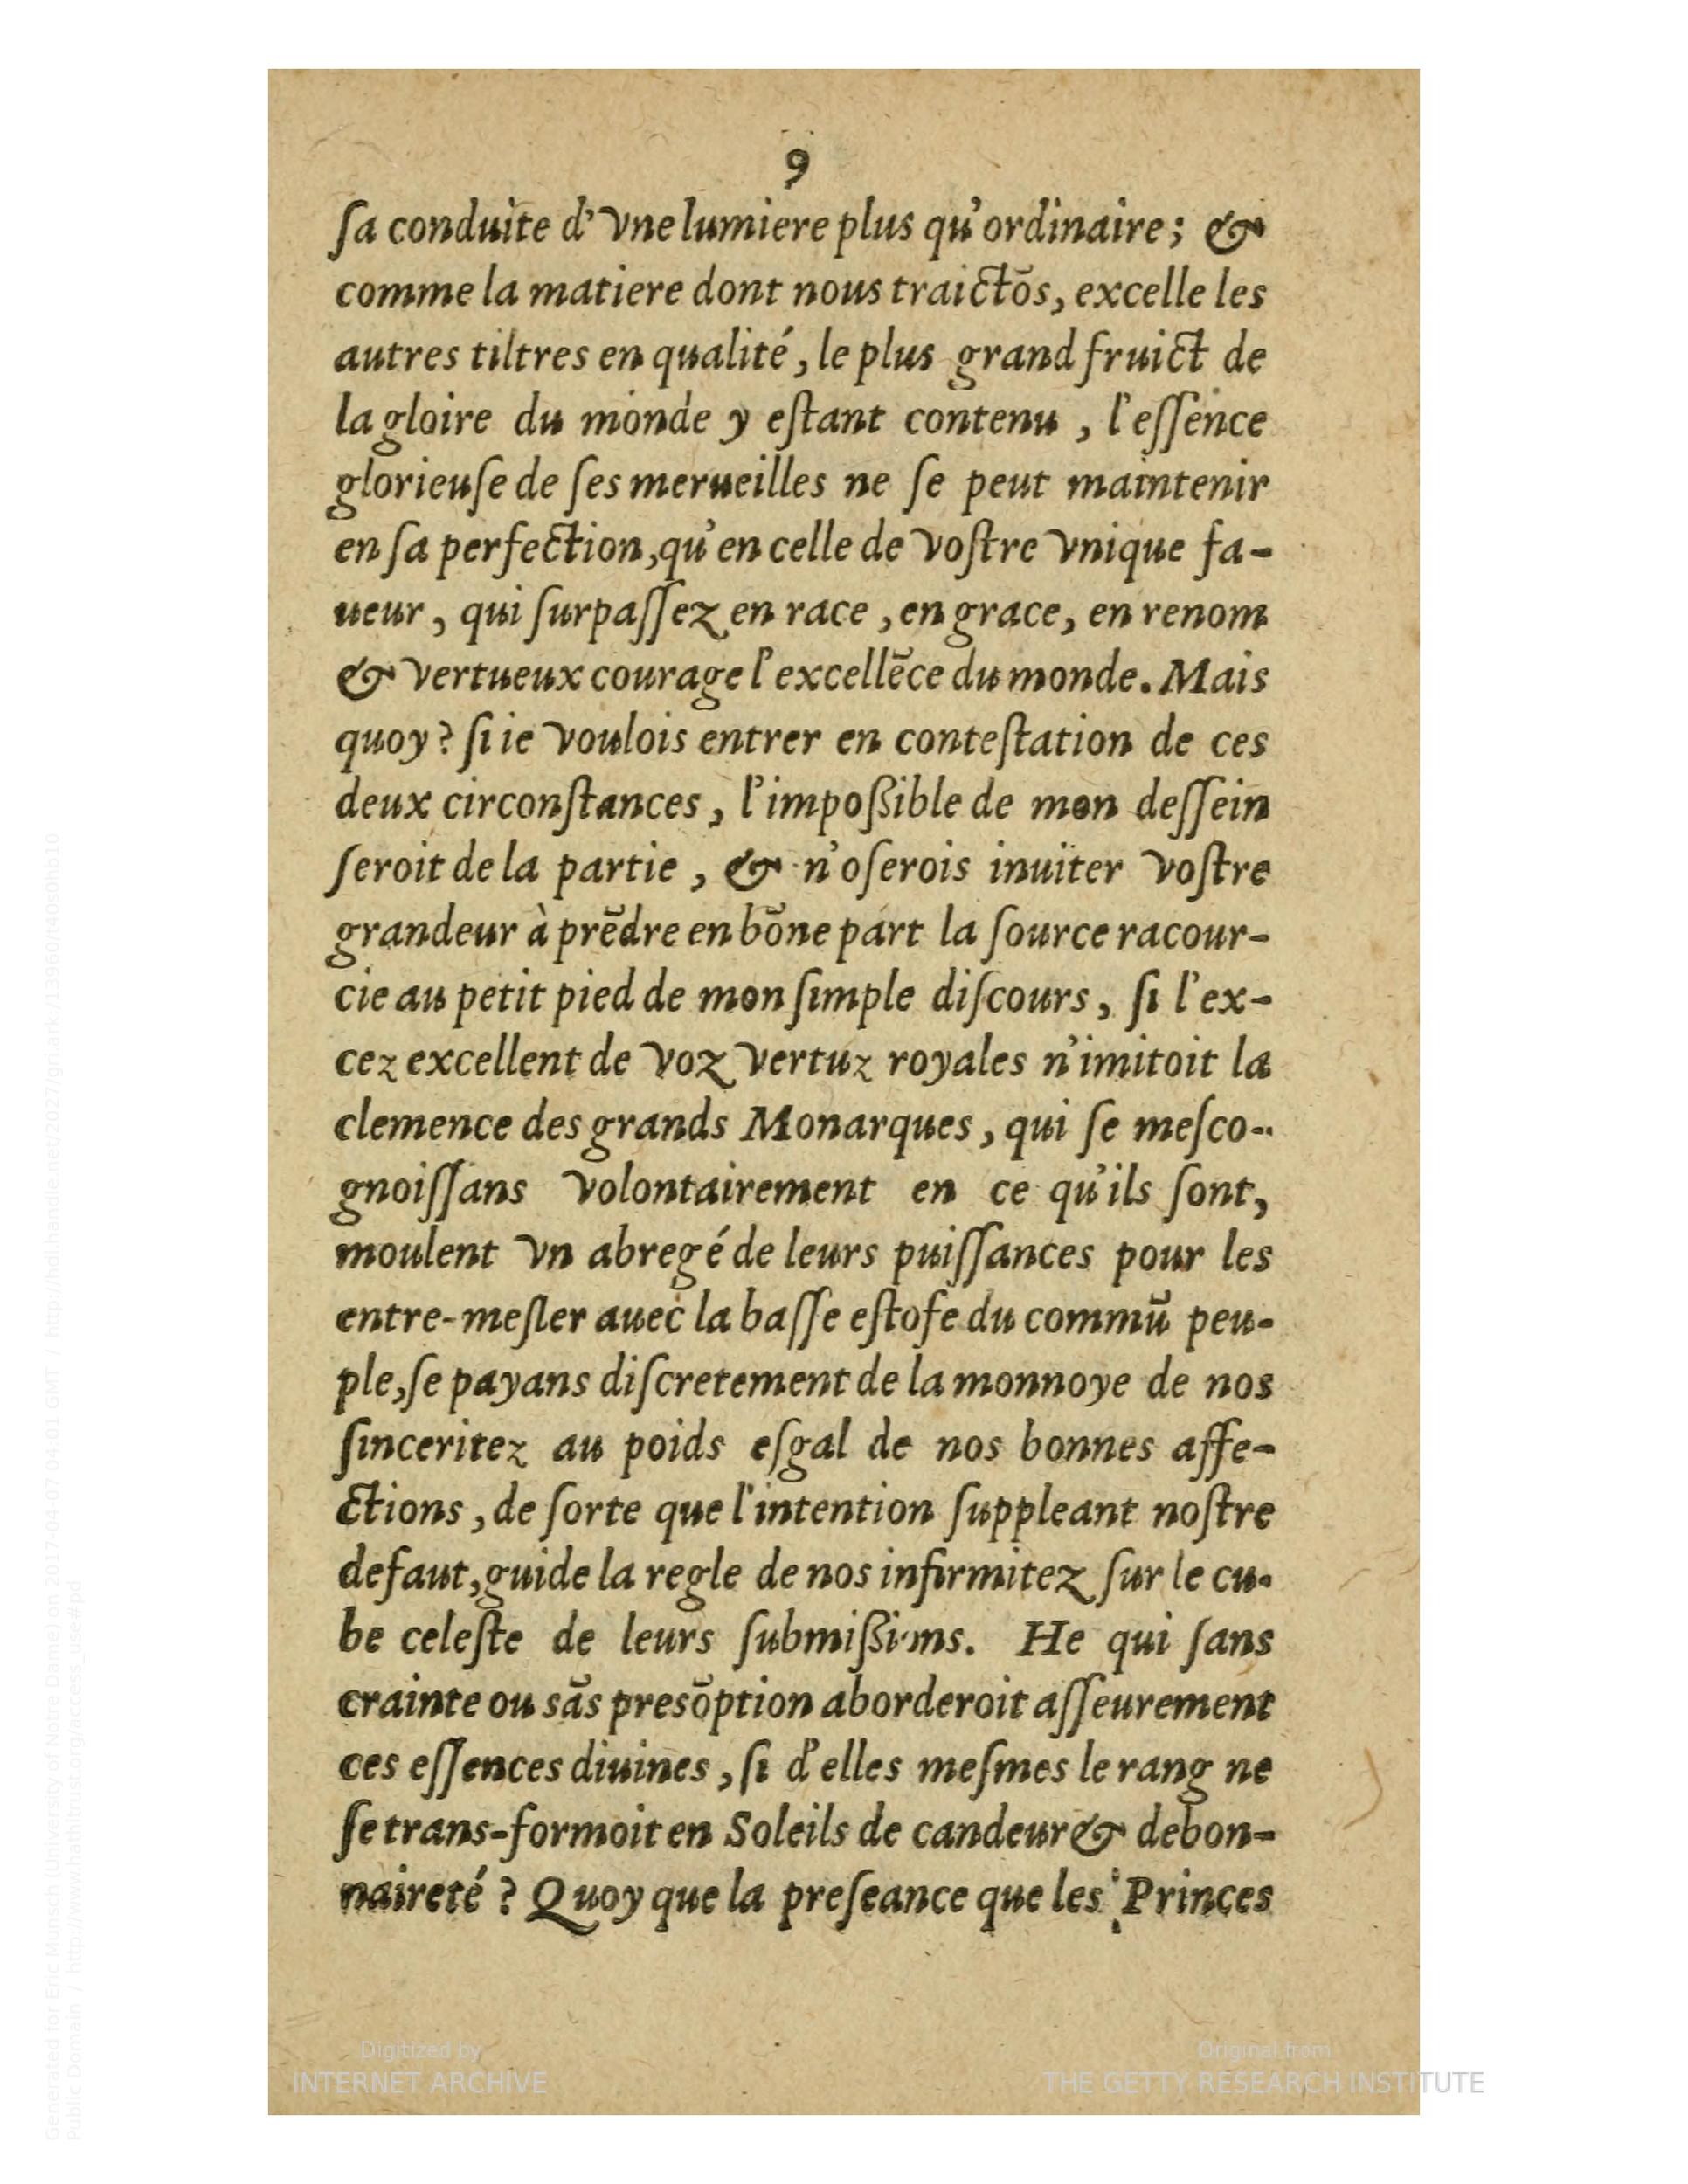 9
ſa conduite d'vne lumiere plus qu'ordinaire; &
comme la matiere dont nous traictōs, excelle les
autres tiltres en qualité, le plus grand fruict de
la gloire du monde y eſtant contenu, l'eſſence
glorieuſe de ſes merueilles ne ſe peut maintenir
en ſa perfection, qu'en celle de voſtre vnique fa-
ueur, qui ſurpaſſez en race, en grace, en renom
& vertueux courage l'excellēce du monde. Mais
quoy? ſi ie voulois entrer en conteſtation de ces
deux circonſtances, l'impoßible de mon deſſein
ſeroit de la partie, & n'oſerois inuiter voſtre
grandeur à prēdre en bōne part la ſource racour-
cie au petit pied de mon ſimple diſcours, ſi l'ex-
cez excellent de voz vertuz royales n'imitoit la
clemence des grands Monarques, qui ſe meſco-
gnoiſſans volontairement en ce qu'ils ſont,
moulent vn abregé de leurs puiſſances pour les
entre-meſler auec la baſſe eſtofe du commū peu-
ple, ſe payans diſcretement de la monnoye de nos
ſinceritez au poids eſgal de nos bonnes affe-
ctions, de ſorte que l'intention ſuppleant noſtre
defaut, guide la regle de nos infirmitez ſur le cu-
be celeſte de leurs ſubmißions. He qui ſans
crainte ou sās presōption aborderoit aſſeurement
ces eſſences diuines, ſi d'elles meſmes le rang ne
ſe trans-formoit en Soleils de candeur & debon-
naireté? Quoy que la preſeance que les Princes
Digitized by
INTERNET ARCHIVE
Original from
THE GETTY RESEARCH INSTITUTE